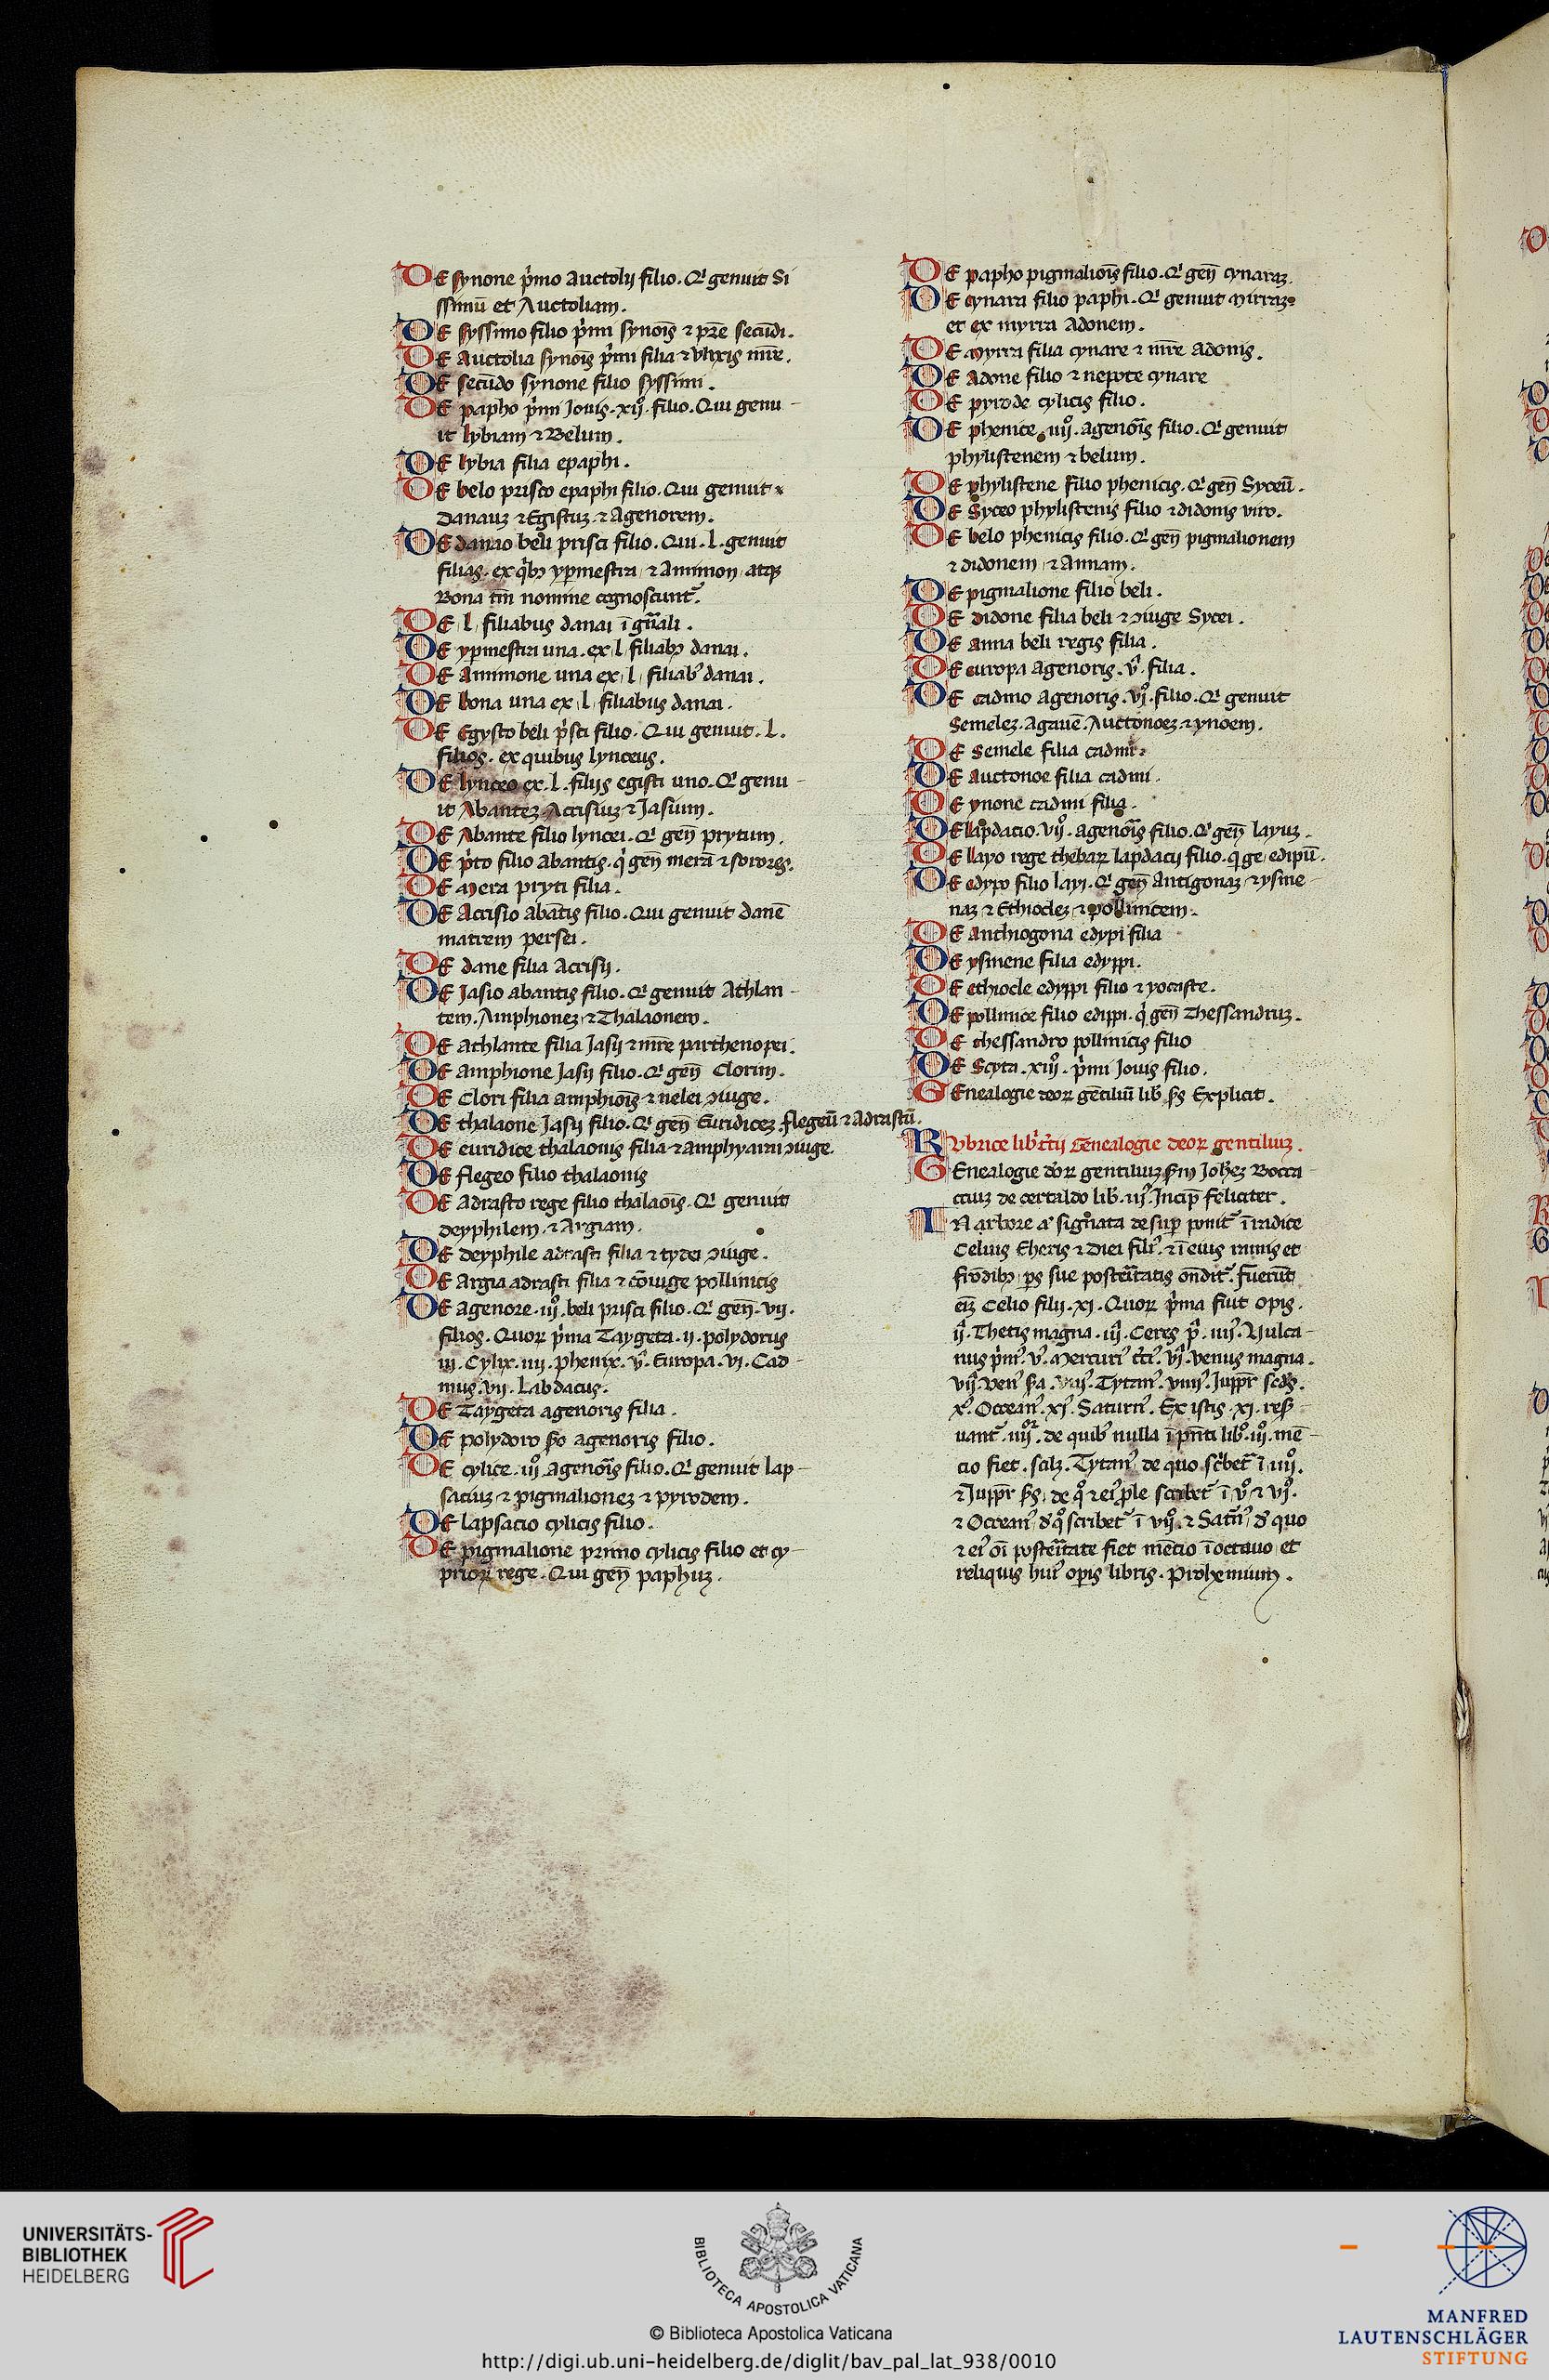 DE synone p̓mo auctolij filio. Q̓ genuit Si
ssimū et Auctoliam.
DE syssimo filio p̓mi synoīs ⁊ pr̄e secūdi.
DE Auctolia synoīs p̓mi filia ⁊ vlixis mr̄e.
DE secūdo synone filio syssimi.
DE papho p̓mi Jouis. xijº. filio. Qui genu-
it lybiam ⁊ Belum.
DE lybia filia epaphi.
DE belo prisco epaphi filio. Qui genuit
Danauꝫ ⁊ Egistuꝫ. ⁊ Agenorem.
DE danao beli prisci filio. Qui. l. genuit
filias. ex q̓bꝫ ypmestra, ⁊ Amimon, atqꝫ
Bona tm̄ nomine cognoscunt᷑.
DE l filiabus danai ī gn̄ali.
DE ypmestra una. ex l filiabꝫ danai.
DE Amimone una ex l filiabꝰ danai.
DE bona una ex l filiabus danai.
DE Egysto beli p̓sci filio. Qui genuit. L.
filios. ex quibus lynceus.
DE lynceo ex. l. filijs egisti uno. Q̓ genu-
it Abanteꝫ. Acrisiuꝫ ⁊ Jasium.
DE Abante filio lyncei. Q̓ gen̄ prytum.
DE p̓to filio abantis. q̓ gen̄ merā ⁊ sorores.
DE Mera pryti filia.
DE Acrisio abātis filio. Qui genuit danē
matrem persei.
DE dane filia Acrisij.
DE Jasio abantis filio. Q̓ genuit Athlan-
tem. Amphioneꝫ ⁊ Thalaonem.
DE athlante filia Jasij ⁊ mr̄e parthenopei.
DE amphione Jasij filio. Q̓ gen̄ Clorim.
DE Clori filia amphioīs ⁊ nelei ↄiuge.
DE thalaone Jasij filio. Q̓ gen̄ Euridiceꝫ. flegeū ⁊ Adrastū.
DE euridice thalaonis filia ⁊ amphyarai ↄiuge.
DE flegeo filio thalaonis
DE Adrasto rege filio thalaoīs. Q̓ genuit
deyphilem. ⁊ Argiam.
DE deyphile adrasti filia ⁊ tydei ↄiuge.
DE Argia adrasti filia ⁊ cōiuge pollinicis
DE agenore. iijº. beli prisci filio. Q̓ gen̄. vij.
filios. Quoꝝ p̓ma Taygeta. ij. polydorus
iij. Cylix. iiij. phenix. vª. Europa. vi. Cad-
mus. vij. Labdacus.
DE Taygeta agenoris filia.
DE polydoro sº agenoris filio.
DE cylice. iijº. agenoīs filio. Q̓ genuit lap-
saciuꝫ ⁊ pigmalioneꝫ ⁊ pyrodem.
DE lapsacio cylicis filio.
DE pigmalione primo cylicis filio et cy-
prioꝝ rege. Qui gen̄ paphuꝫ.
DE papho pigmalioīs filio. Q̓ gen̄ cynaraꝫ.
DE cynara filio paphi. Q̓ genuit mirraꝫ
et ex myrra Adonem.
DE Myrra filia cynare ⁊ mr̄e Adonis.
DE Adone filio ⁊ nepote cynare
DE pyrode cylicis filio.
DE phenice. iiijº. agenoīs filio. Q̓ genuit
phylistenem ⁊ belum.
DE phylistene filio phenicis. Q̓ gen̄ Syceū.
DE Syceo phylistenis filio ⁊ didonis viro.
DE belo phenicis filio. Q̓ gen̄ pigmalionem
⁊ didonem, ⁊ Annam.
DE pigmalione filio beli.
DE didone filia beli ⁊ ↄiuge Sycei.
DE anna beli regis filia.
DE europa agenoris. vª. filia.
DE cadmo agenoris. vjº. filio. Q̓ genuit
Semeleꝫ. Agauē. Auctonoeꝫ ⁊ ynoem.
DE Semele filia cadmi.
DE auctonoe filia cadmi.
DE ynone cadmi filia.
DE lapdacio. vijº. agenoīs filio. Q̓ gen̄ layuꝫ.
DE layo rege thebaꝝ lapdacij filio. q̓ ge, edipū.
DE edypo filio layi. Q̓ gen̄ Antigonaꝫ ⁊ ysme-
naꝫ ⁊ Ethiocleꝫ ⁊ pollinicem.
DE anthiogona edypi filia
DE ysmene filia edyppi.
DE ethiocle edyppi filio ⁊ yocaste.
DE pollinice filio edippi. q̓ gen̄ Thessandruꝫ.
DE thessandro pollinicis filio
DE Scyta. xiijº. p̓mi Jouis filio.
GEnealogie deoꝝ gētiliū lib̓ sꝰ Explicit.
RVbrice lib̓ t̓cij Genealogie deoꝝ gentiliuꝫ.
GEnealogie d̓oꝝ gentiliuꝫ sm̄ Joh̄eꝫ Bocca-
cciuꝫ de certaldo lib̓. iijꝰ. Incip̄ feliciter.
IN arbore a͛ signata desup ponit᷑ ī radice
Celius Etheris ⁊ Diei filiꝰ. ⁊ ī eius ramis et
frōdibꝫ ps sue post̓itatis on̄dit᷑. Fuerūt
eiꝫ Celio filij. xj. Quoꝝ p̓ma fuit Opis.
ijª. Thetis magna. iijª. Ceres pª. iiijꝰ. Vulca-
nus p̓mꝰ. vꝰ. Mercuriꝰ t̓ciꝰ. vjª. Venus magna.
vijª. Venꝰ sª. viijꝰ. Tytanꝰ. viiijꝰ. Jupp̄r scd̄s.
xꝰ. Oceanꝰ. xjꝰ. Saturnꝰ. Ex istis. xj. res̓-
uant᷑. iiijºʳ. de quibꝰ nulla ī pn̄ti libº. iijº. mē-
tio fiet. scilꝫ. Tytanꝰ de quo sc̓bet᷑ ī iiijº.
⁊ Jupp̄r sꝰ, de qº ⁊ eiꝰ ple scribet᷑ ī vº ⁊ vjº.
⁊ Oceanꝰ, d̓ qº scribet᷑ ī vijº. ⁊ Satnꝰ, d̓ quo
⁊ eiꝰ oī post̓itate fiet mētio ī octauo, et
reliquis huiꝰ opis libris. Prohemium.
UNIVERSITÄTS-
BIBLIOTHEK
HEIDELBERG
BIBLIOTECA APOSTOLICA VATICANA
© Biblioteca Apostolica Vaticana
http://digi.ub.uni-heidelberg.de/diglit/bav_pal_lat_938/0010
MANFRED
LAUTENSCHLÄGER
STIFTUNG